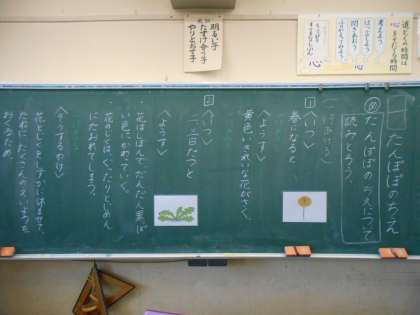 たんぽぽのちえ
め たんぽぽのちえについて
読みとろう。
(一行あける)
1 〈いつ〉
春になると
〈ようす〉
黄色いきれいな花がさく。
2 〈いつ〉
二、三日たつと
〈ようす〉
・花はしぼんで、だんだん黒っぽ
い色にかわっていく。
・花のじくは、ぐったりとじめん
にたおれてしまう。
〈そうするわけ〉
花とじくをしずかに休ませて、
たねに、たくさんのえいようを
おくるため。
明るい子
たすけ合う子
やりとおす子
心
心